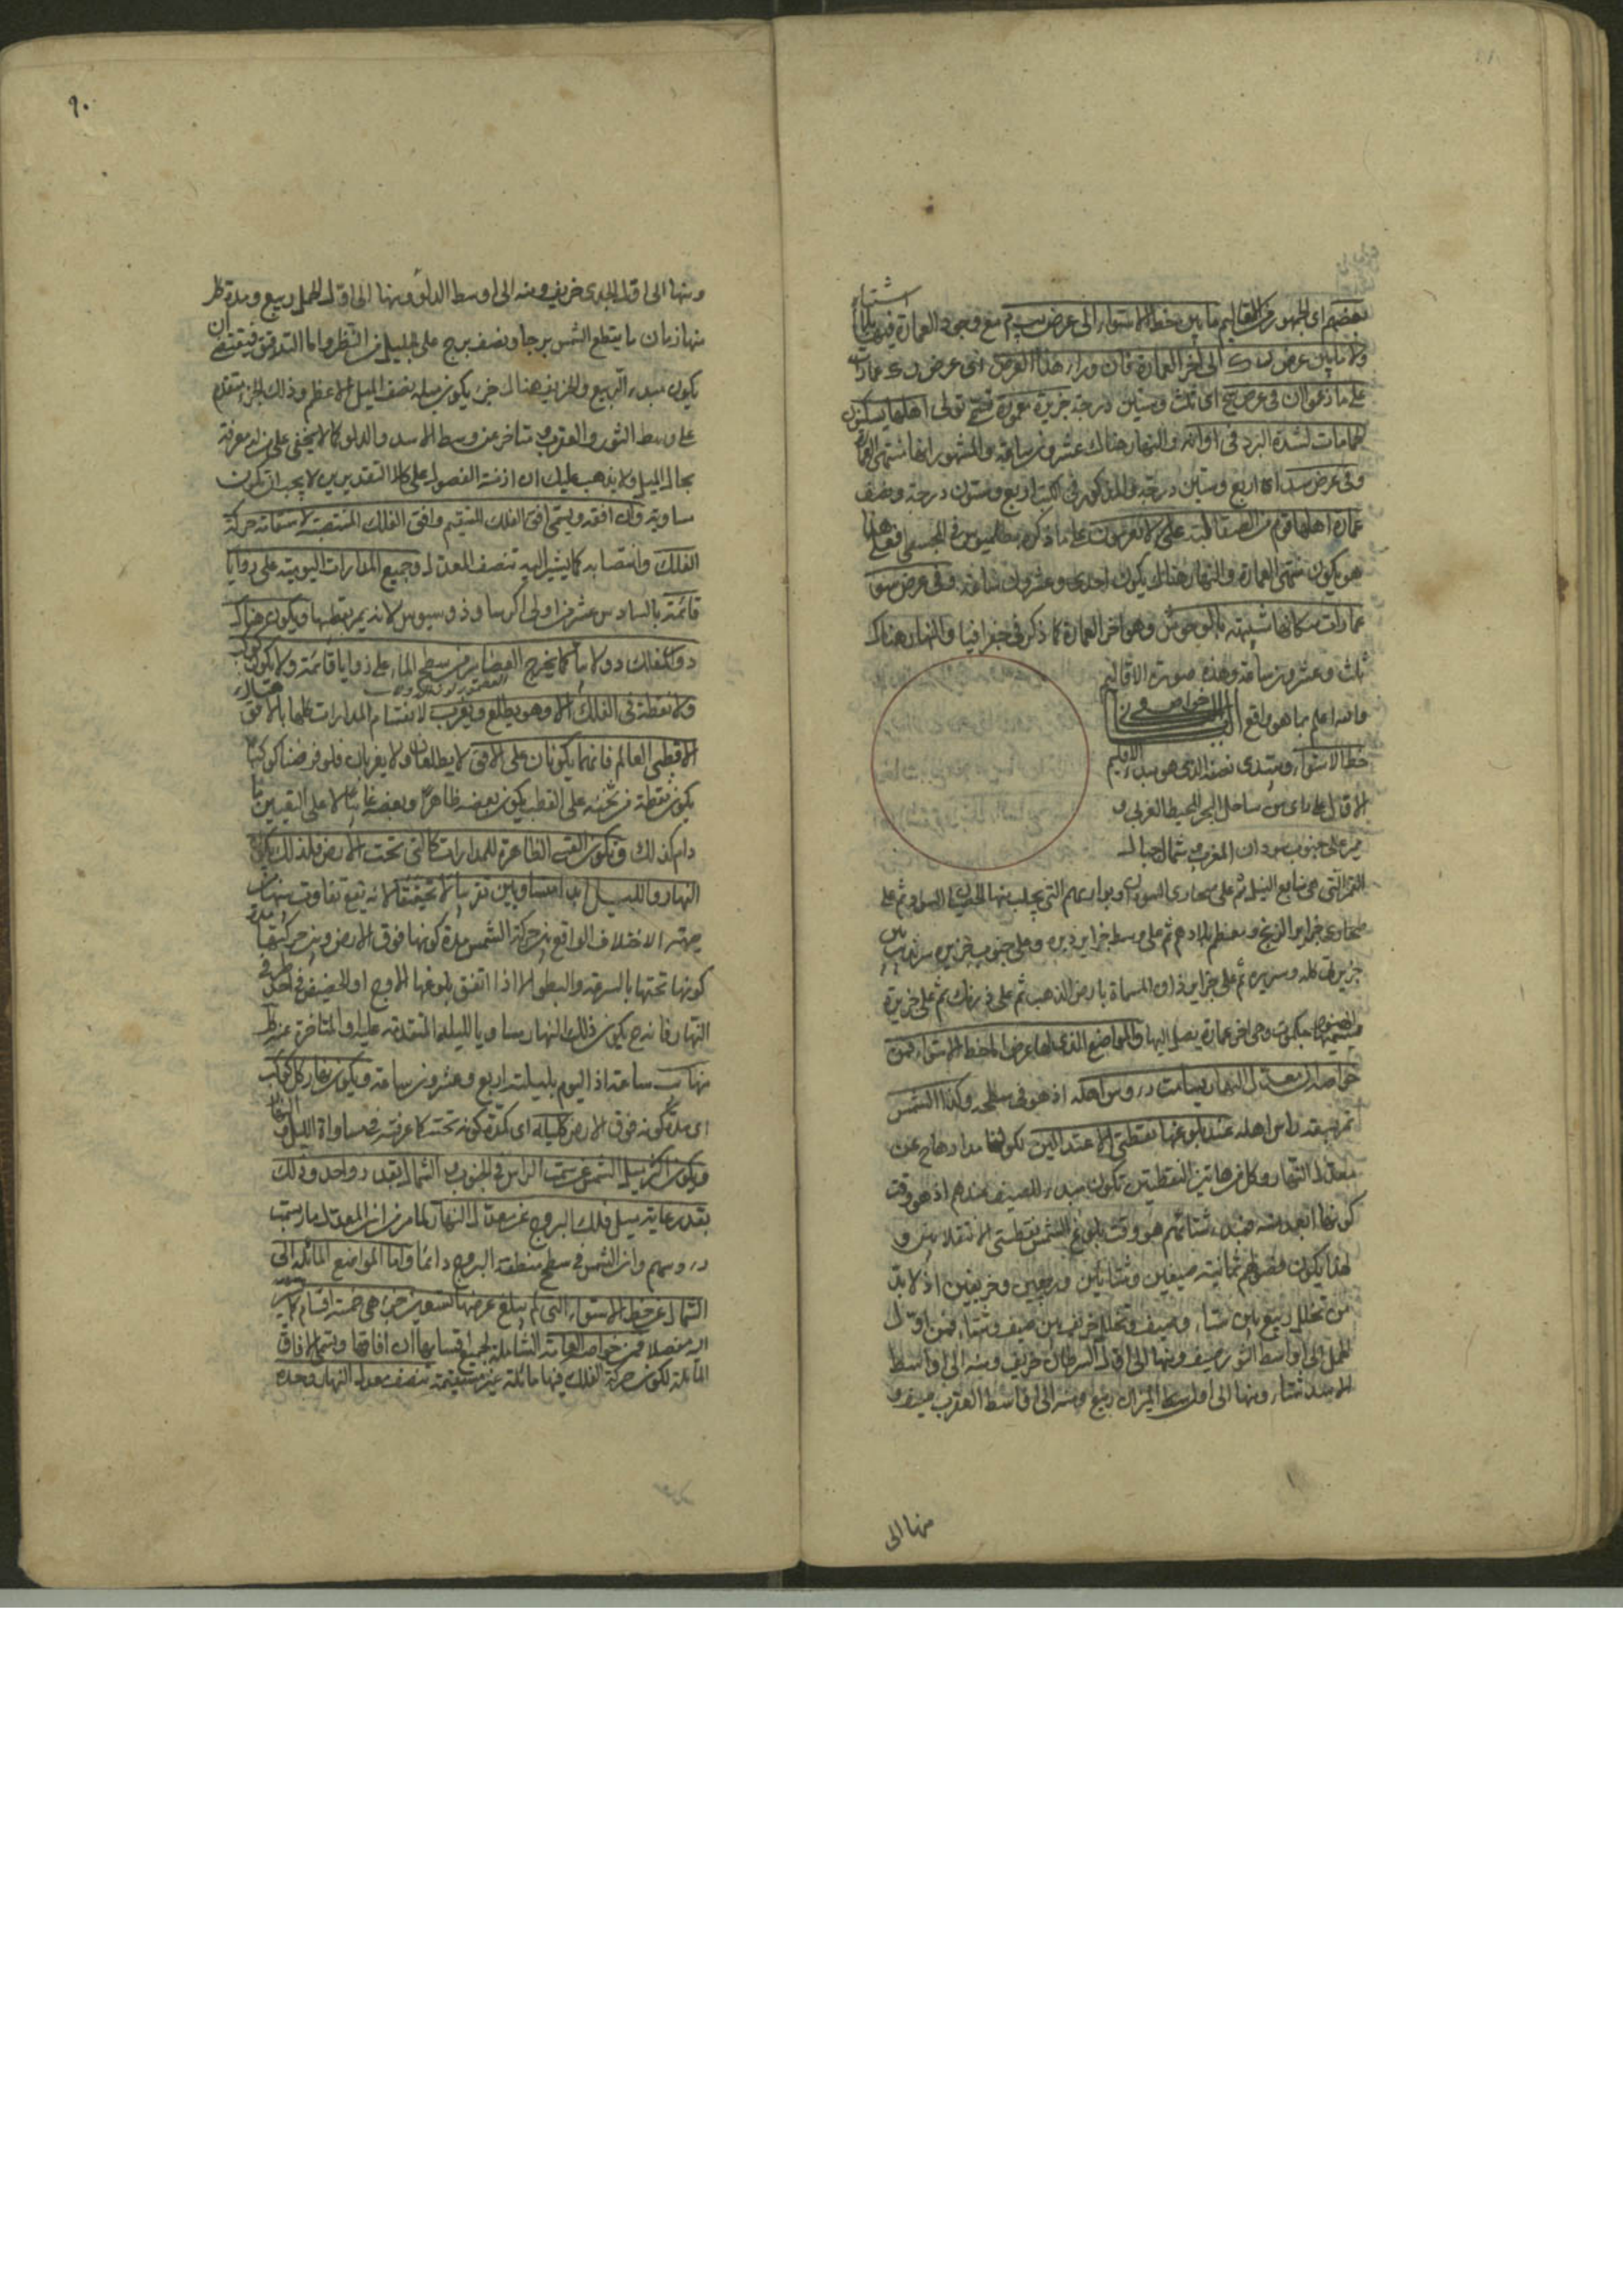 بعضهم اى الجمهور من الاقاليم ما بين خط الاستواء الى عرض يب م مع وجود العمارة فيه
ولا ما بين عرض ن ك الى آخر العمارة فان وراء هذا العرض اى عرض ن ك عمارات
على ما زعموا ان فى عرض سج اى ثلث وستين درجة جزيرة معمورة تسمى تولى اهلها يسكنون
الحمامات لشدة البرد فى اوانه والنهار هناك عشرون ساعة والمشهور انها منتهى العمارة
وفى عرض سد اى اربع وستين درجة والمذكور فى الكتب اربع وستون درجة ونصف
عمارة اهلها قوم من الصقالبة على ما ذكره بطلميوس فى المجسطى فعلى هذا
هو يكون منتهى العمارة والنهار هناك يكون احدى وعشرون ساعة وفى عرض سو
عمارات سكانها شبيهة بالوحوش وهو آخر العمارة كما ذكر فى جغرافيا والنهار هناك
ثلث وعشرون ساعة وهذه صورة الاقاليم
والله اعلم بما هو الواقع
خط الاستواء ويبتدى نصفه الذى هو مبداء الاقليم
الاول على ما يلى ساحل البحر المحيط الغربى و
يمر على جنوب سودان المغرب وشمال جبال
القمر التى هى منابع النيل ثم على صحارى السودان وبواديهم التى يجلب منها ثم على
صحارى جزاير الزنج ومعظم بلادهم ثم على وسط جزاير ديره وعلى جنوب جزيرة سرنديب
جزيرتى كله وسريره ثم على جزاير المسماة بارض الذهب ثم على ثم على جزيرة
وهى آخر عمارة يصل اليها والمواضع الذى لا عرض لها خط الاستواء فمن
خواصه ان معدل النهار يسامت رؤس اهله اذ هو فى سطحه وكذا الشمس
تمر بسمت راس اهله عند بلوغها نقطتى الاعتدالين لكون مدارها ح عن
معدل النهار وكل من هاتين النقطتين تكون مبداء للصيف عندهم اذ هو وقت
كونها ابعد منه مبداء شتائهم هو وقت بلوغ الشمس نقطتى الانقلابين و
لهذا يكون فصولهم ثمانية صيفين وشتائين وربيعين وخريفين اذ لا بد
من تخلل ربيع بين شتاء وصيف وتخلل خريف بين صيف وشتاء فمن اول
الحمل الى اواسط الثور صيف ومنها الى اول السرطان خريف ومنه الى اواسط
الاسد شتاء ومنها الى اول الميزان ربيع ومنه الى اواسط العقرب صيف و
منها الى
٩٠
ومنها الى اول الجدى خريف ومنه الى اوسط الدلو ومنها الى اول الحمل ربيع ومدة كل
منها زمان ما يقطع الشمس برجا ونصف برج على الجليل من النظر واما التدقيق فيقتضى ان
يكون مبداء الربيع والخريف هناك حين يكون ميله نصف الميل الاعظم وذلك الجزء متقدم
على وسط الثور والعقرب و متاخر عن وسط الاسد والدلو كما لا يخفى على من له معرفة
بحال الميل ولا يذهب عليك ان ازمنة الفصول على كلا التقديرين لا يجب ان تكون
متساوية وان افقه ويسمى افق الفلك المستقيم وافق الفلك المنتصبة لاستقامة حركة
الفلك وانتصابه كما يشير اليه تنصف المعدل وجميع المدارات اليومية على زوايا
قائمة بالسادس عشر من اولى اكر ساوذوسيوس لانه يمر بقطبها ويكون حركة هناك
دور الفلك دولابيا كما يخرج العصامير من سطح الماء على زوايا قائمة ولا يكون كوكب
ولا نقطة فى الفلك الا وهو يطلع ويغرب لانقسام المدارات كلها بالافق هناك
الا قطبى العالم فانهما يكونان على الافق لا يطلعان ولا يغربان فلو فرضنا كوكبا
يكون نقطة من ثخنه على القطب يكون بعضه ظاهرا وبعضه غائبا لا على التعيين ما
دام كذلك ويكون القسى الظاهرة للمدارات كالتى تحت الارض فلذلك يكون
النهار والليل ابدا متساويين تقريبا لا تحقيقا لانه يقع تفاوت بينهما من
جهة الاختلاف الواقع بين حركة الشمس مدة كونها فوق الارض وبين حركتها مدة
كونها تحتها بالسرعة والبطؤ الا اذا اتفق بلوغها الاوج او الحضيض فى احد طرفى
النهار فانه ح يكون ذلك النهار مساويا لليلة المتقدمة عليه او المتاخرة عنه كل
منهما يب ساعة اذ اليوم بليلته اربع وعشرون ساعة ويكون نهار كل كوكب
اى مدة كونه فوق الارض كليله اى كمدة كونه تحته كما عرفته من مساواة الليل والنهار
ويكون اكثر ميل الشمس عن سمت الراس فى الجنوب والشمال بقدر واحد وذلك
بقدر غاية ميل فلك البروج عن معدل النهار لما مر من ان المعدل مار بسمت
رؤسهم وان الشمس فى سطح منطقة البروج دائما واما المواضع المائلة الى
الشمال عن خط الاستواء التى لم يبلغ عرضها تسعين جزءا هى خمسة اقسام كما
مفصلا فمن خواصها العامة الشاملة لجميع اقسامها ان افاقها وتسمى الافاق
المائلة لكون حركة الفلك فيها مائلة غير مستقيمة تنصف معدل النهار وحده